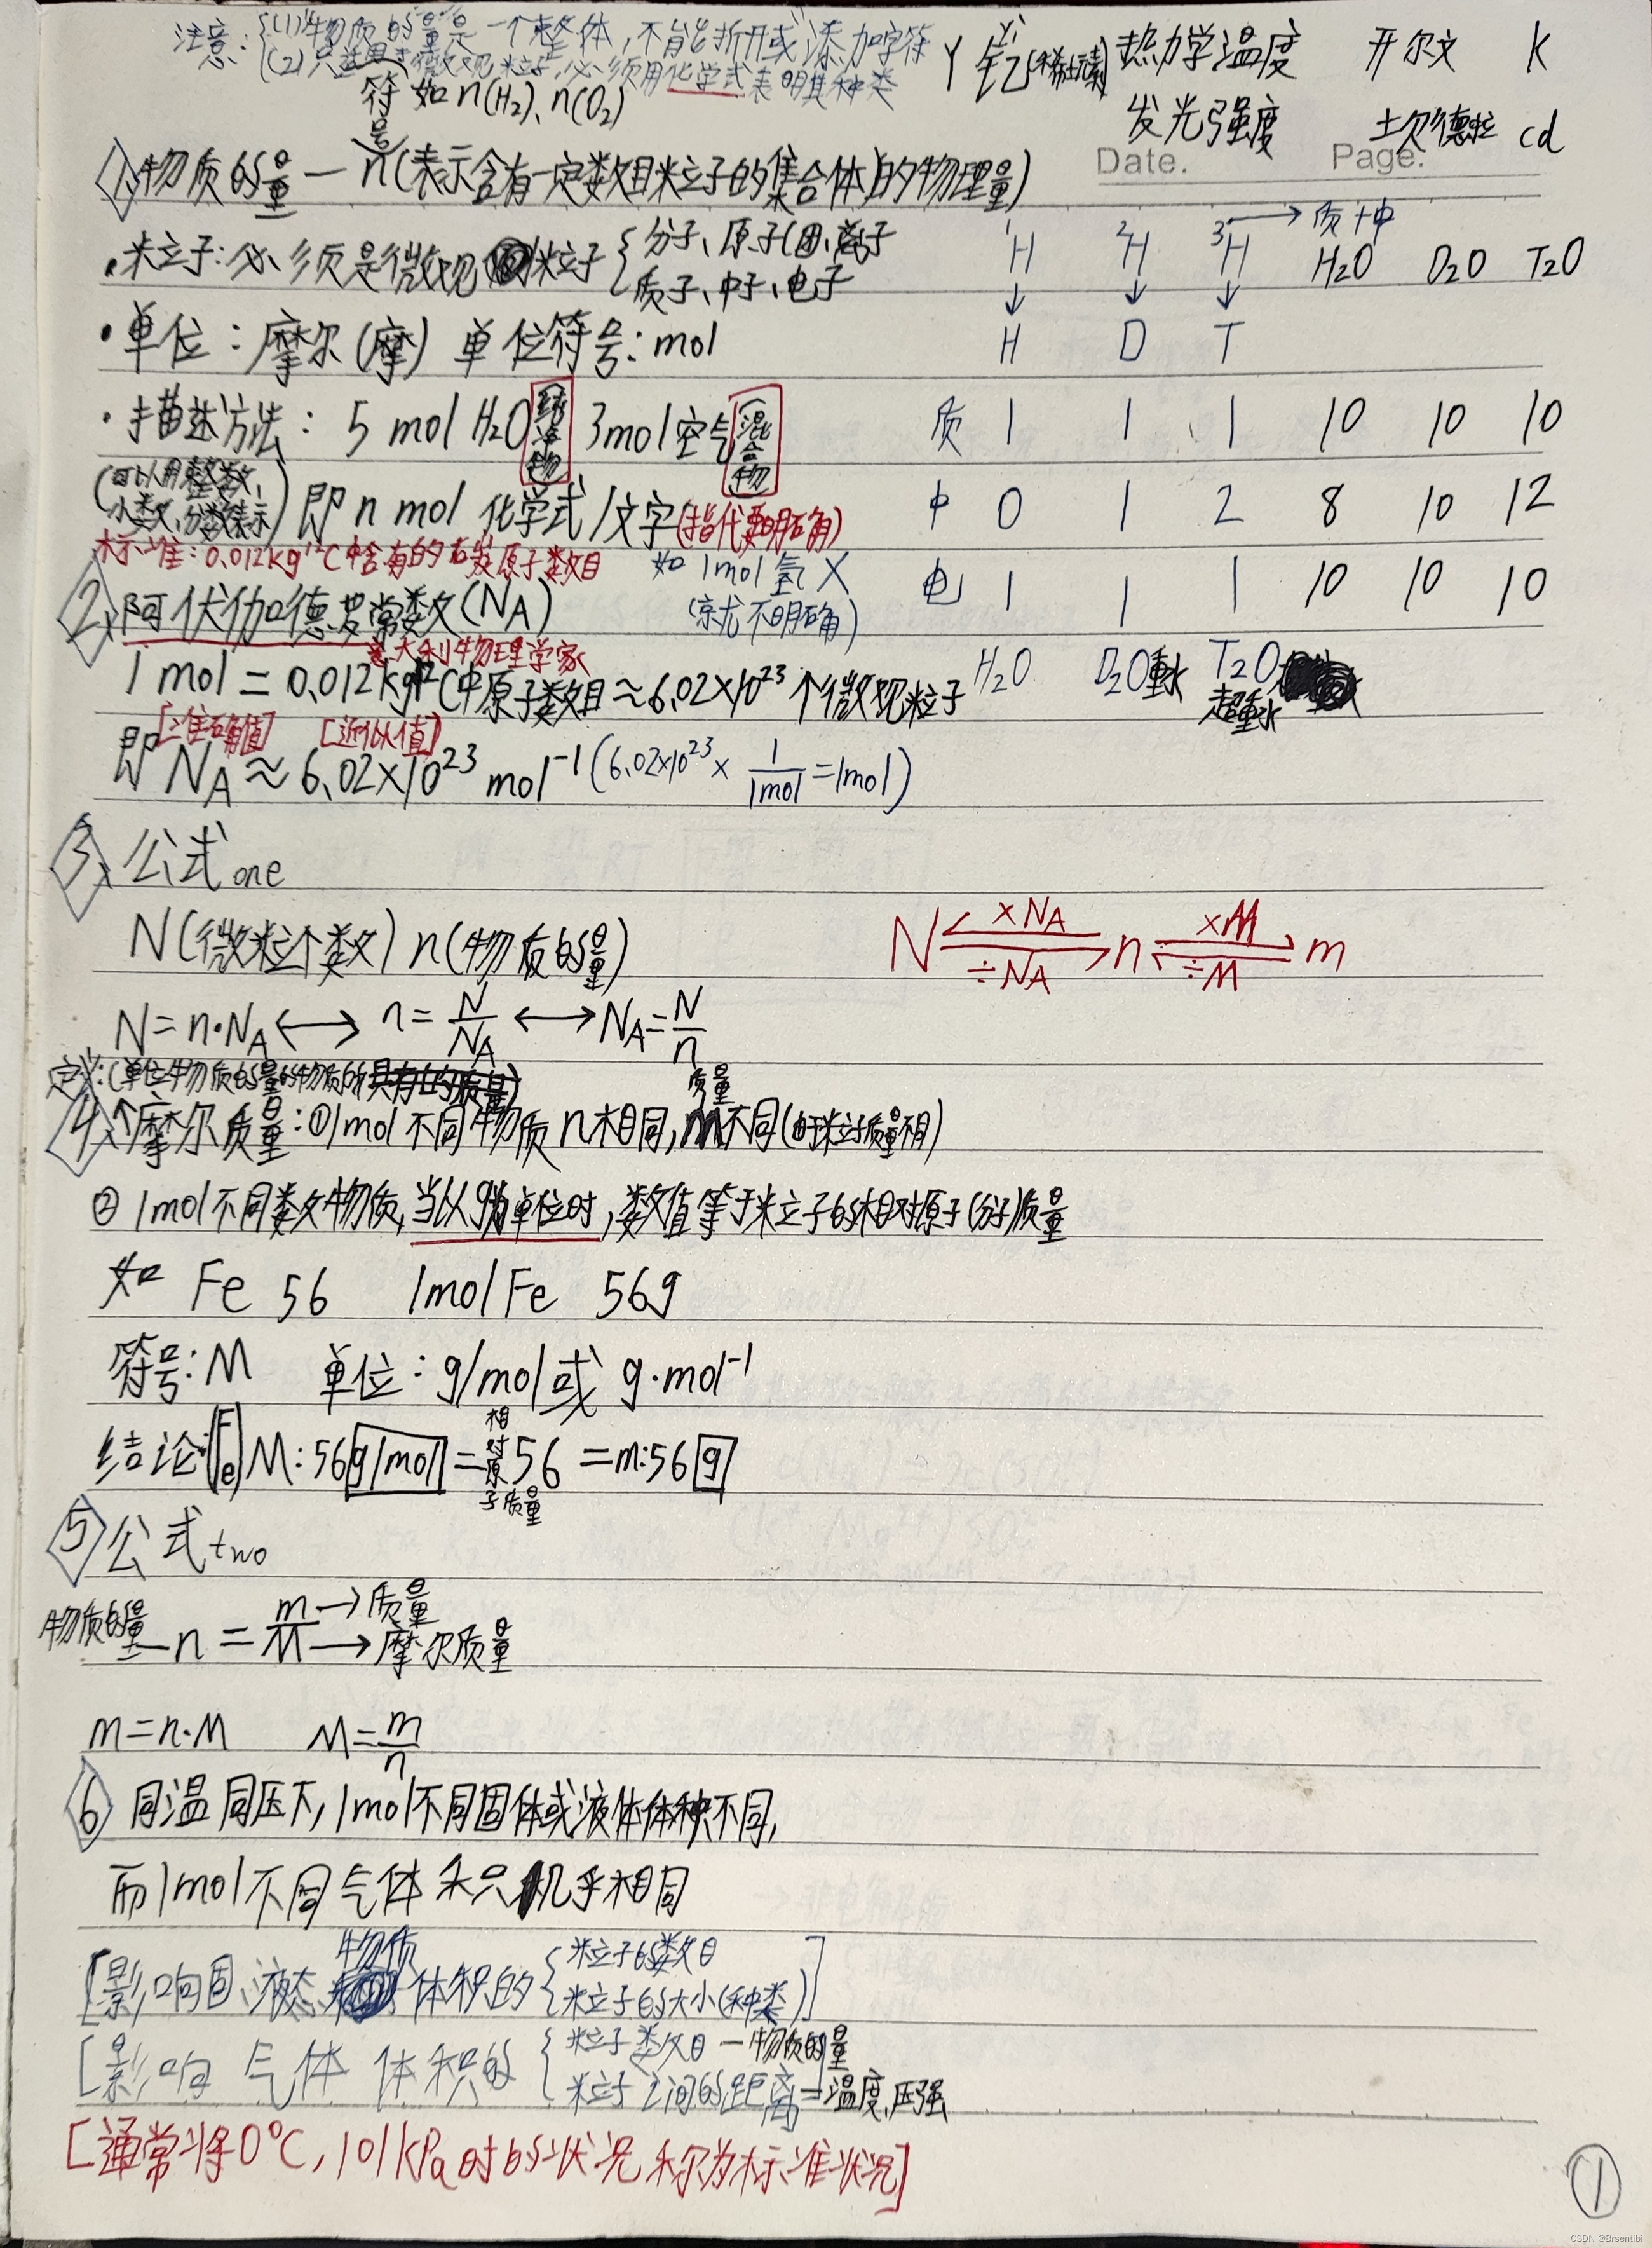 注意:{(1)物质的量是一个整体,不能拆开或添加字符
(2)只适用于微观粒子,必须用化学式表明其种类
符号 如n(H₂)、n(O₂)
Y 钇(稀土元素) 热力学温度 开尔文 K
发光强度 坎德拉 cd
Date. Page.
1、物质的量—n(表示含有一定数目粒子的集合体)的物理量)
·粒子:必须是微观的粒子{分子、原子(团)、离子
质子、中子、电子
¹H ²H ³H → 质+中 H₂O D₂O T₂O
↓ ↓ ↓
·单位:摩尔(摩) 单位符号:mol
H D T
·描述方法: 5 mol H₂O 3mol空气(混合物
质 1 1 1 10 10 10
(可以用整数、小数、分数表示) 即 n mol 化学式/文字(指代要明确)
中 0 1 2 8 10 12
标准:0.012kg¹²C中含有的碳原子数目 如 1mol氢 X
(就不明确)
电 1 1 1 10 10 10
2、阿伏伽德罗常数(NA)
意大利物理学家
1 mol = 0.012kg¹²C中原子数目≈6.02×10²³个微观粒子
H₂O D₂O重水 T₂O超重水
[准确值] [近似值]
即 NA ≈ 6.02×10²³ mol⁻¹ (6.02×10²³× 1/1mol =1mol)
3、公式one
N(微粒个数) n(物质的量)
N ×NA ÷NA n ×M ÷M m
N=n·NA ⟷ n=N/NA ⟷ NA=N/n
定义:(单位物质的量的物质所具有的质量)
4、摩尔质量:①1mol不同物质n相同,m不同(由于粒子质量不同)
质量
② 1mol不同数物质,当以g为单位时,数值等于粒子的相对原子(分子)质量
如 Fe 56 1mol Fe 56g
符号:M 单位:g/mol或 g·mol⁻¹
结论:(Fe) M:56g/mol=相对原子质量56 =m:56g
5、公式two
物质的量—n = m/M →质量 →摩尔质量
m=n·M M=m/n
6、同温同压下,1mol不同固体或液体体积不同,
而1mol不同气体 几乎相同
[影响固、液态物质体积的{粒子的数目
粒子的大小(种类)]
[影响 气体 体积的{粒子数目—物质的量
粒子之间的距离=温度、压强
[通常将0°C,101kPa时的状况称为标准状况]
①
CSDN @Brsentibi